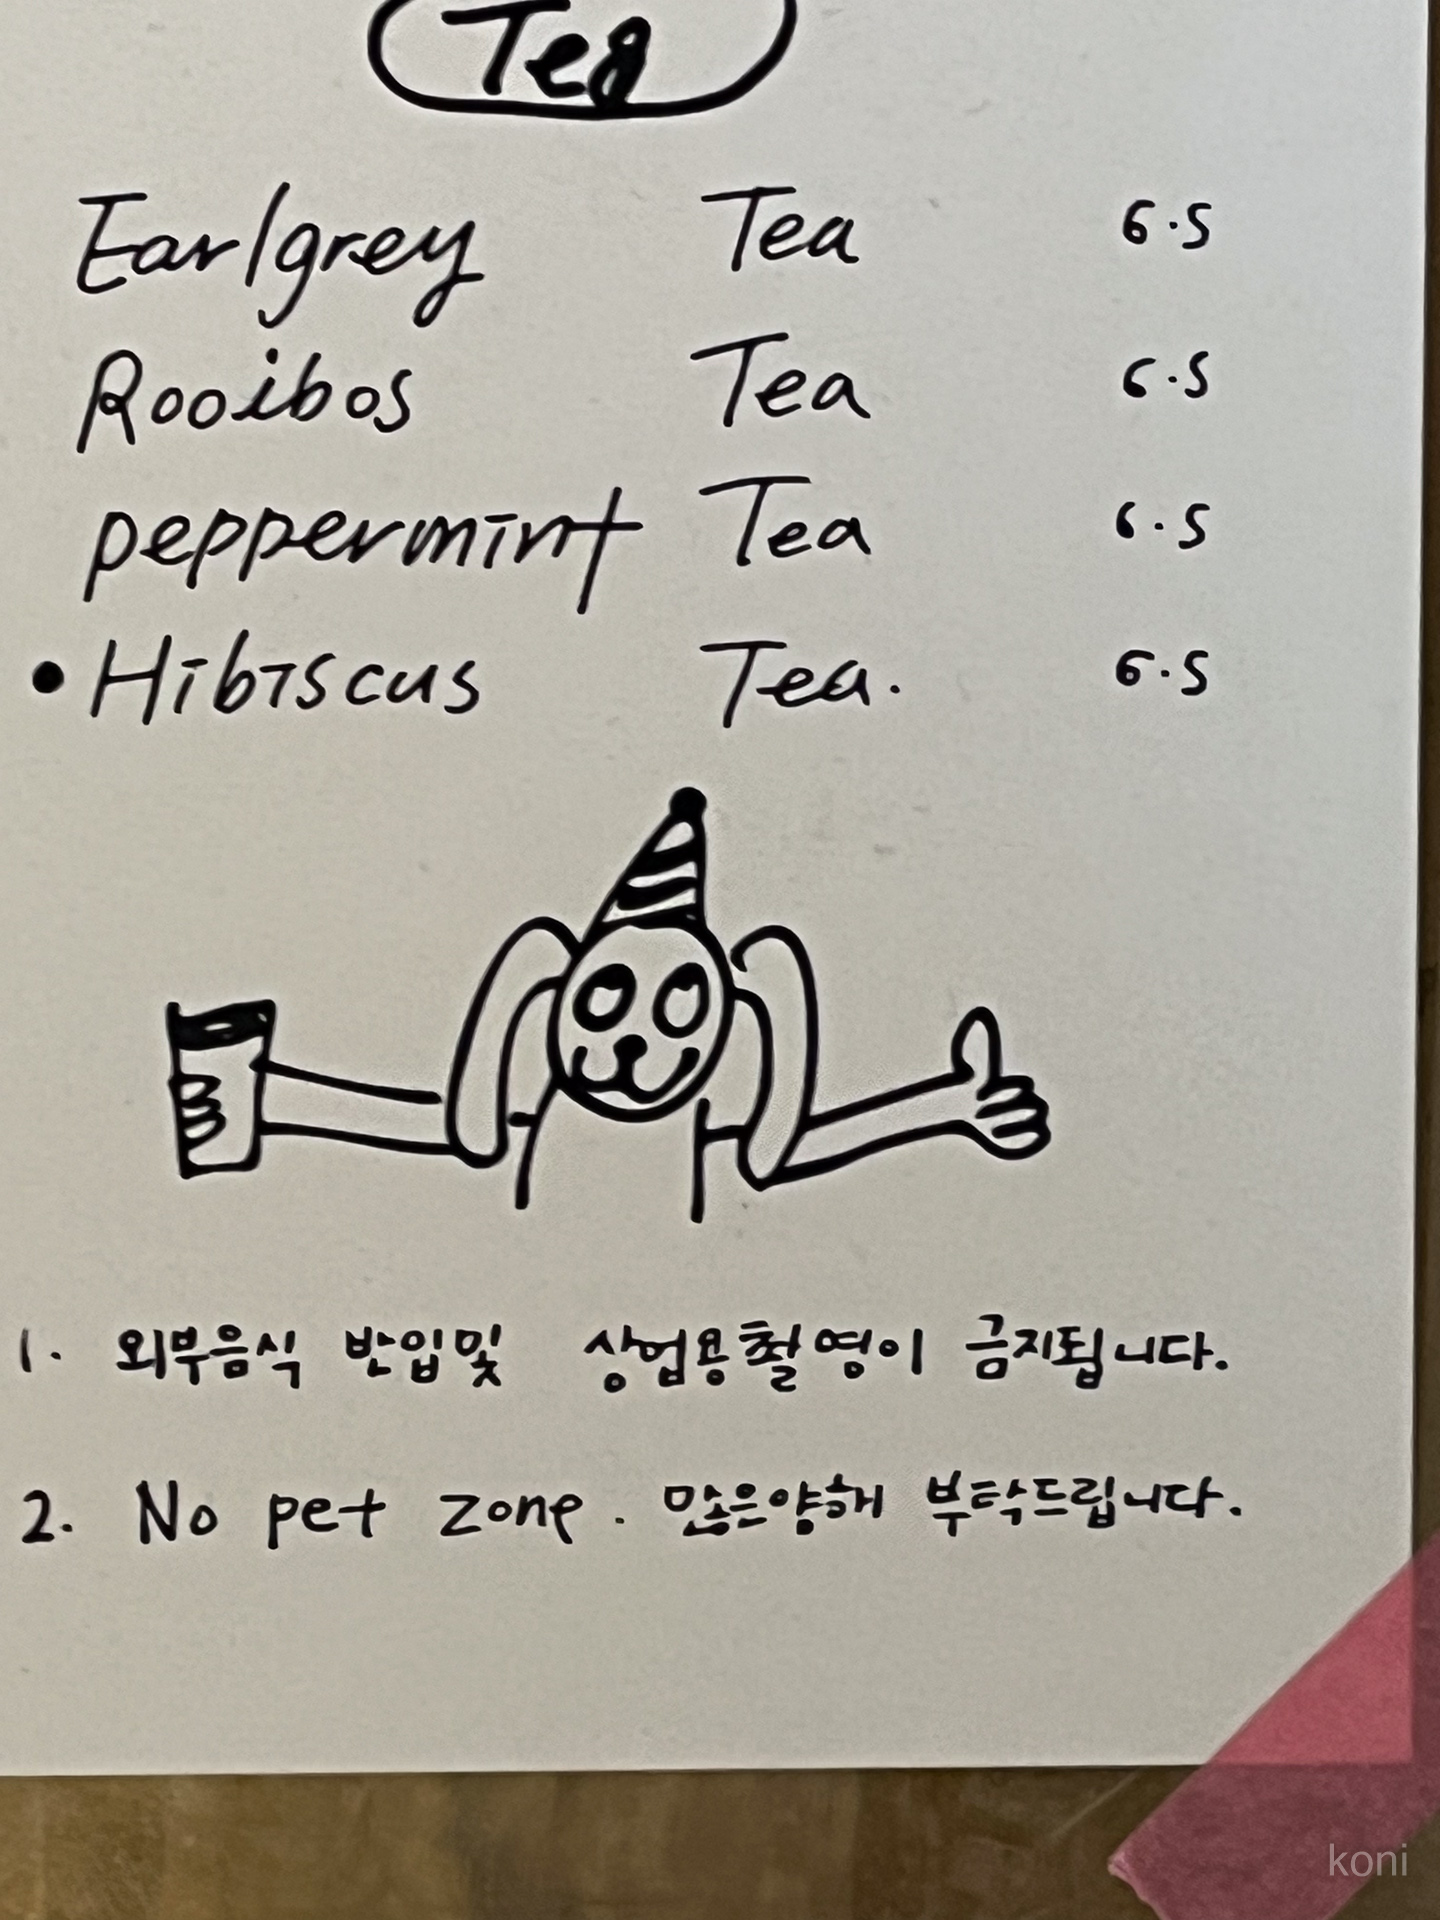 Tea
Earlgrey Tea 6.5
Rooibos Tea 6.5
peppermint Tea 6.5
• Hibiscus Tea. 6.5
1. 외부음식 반입및 상업용촬영이 금지됩니다.
2. No pet zone. 많은양해 부탁드립니다.
koni